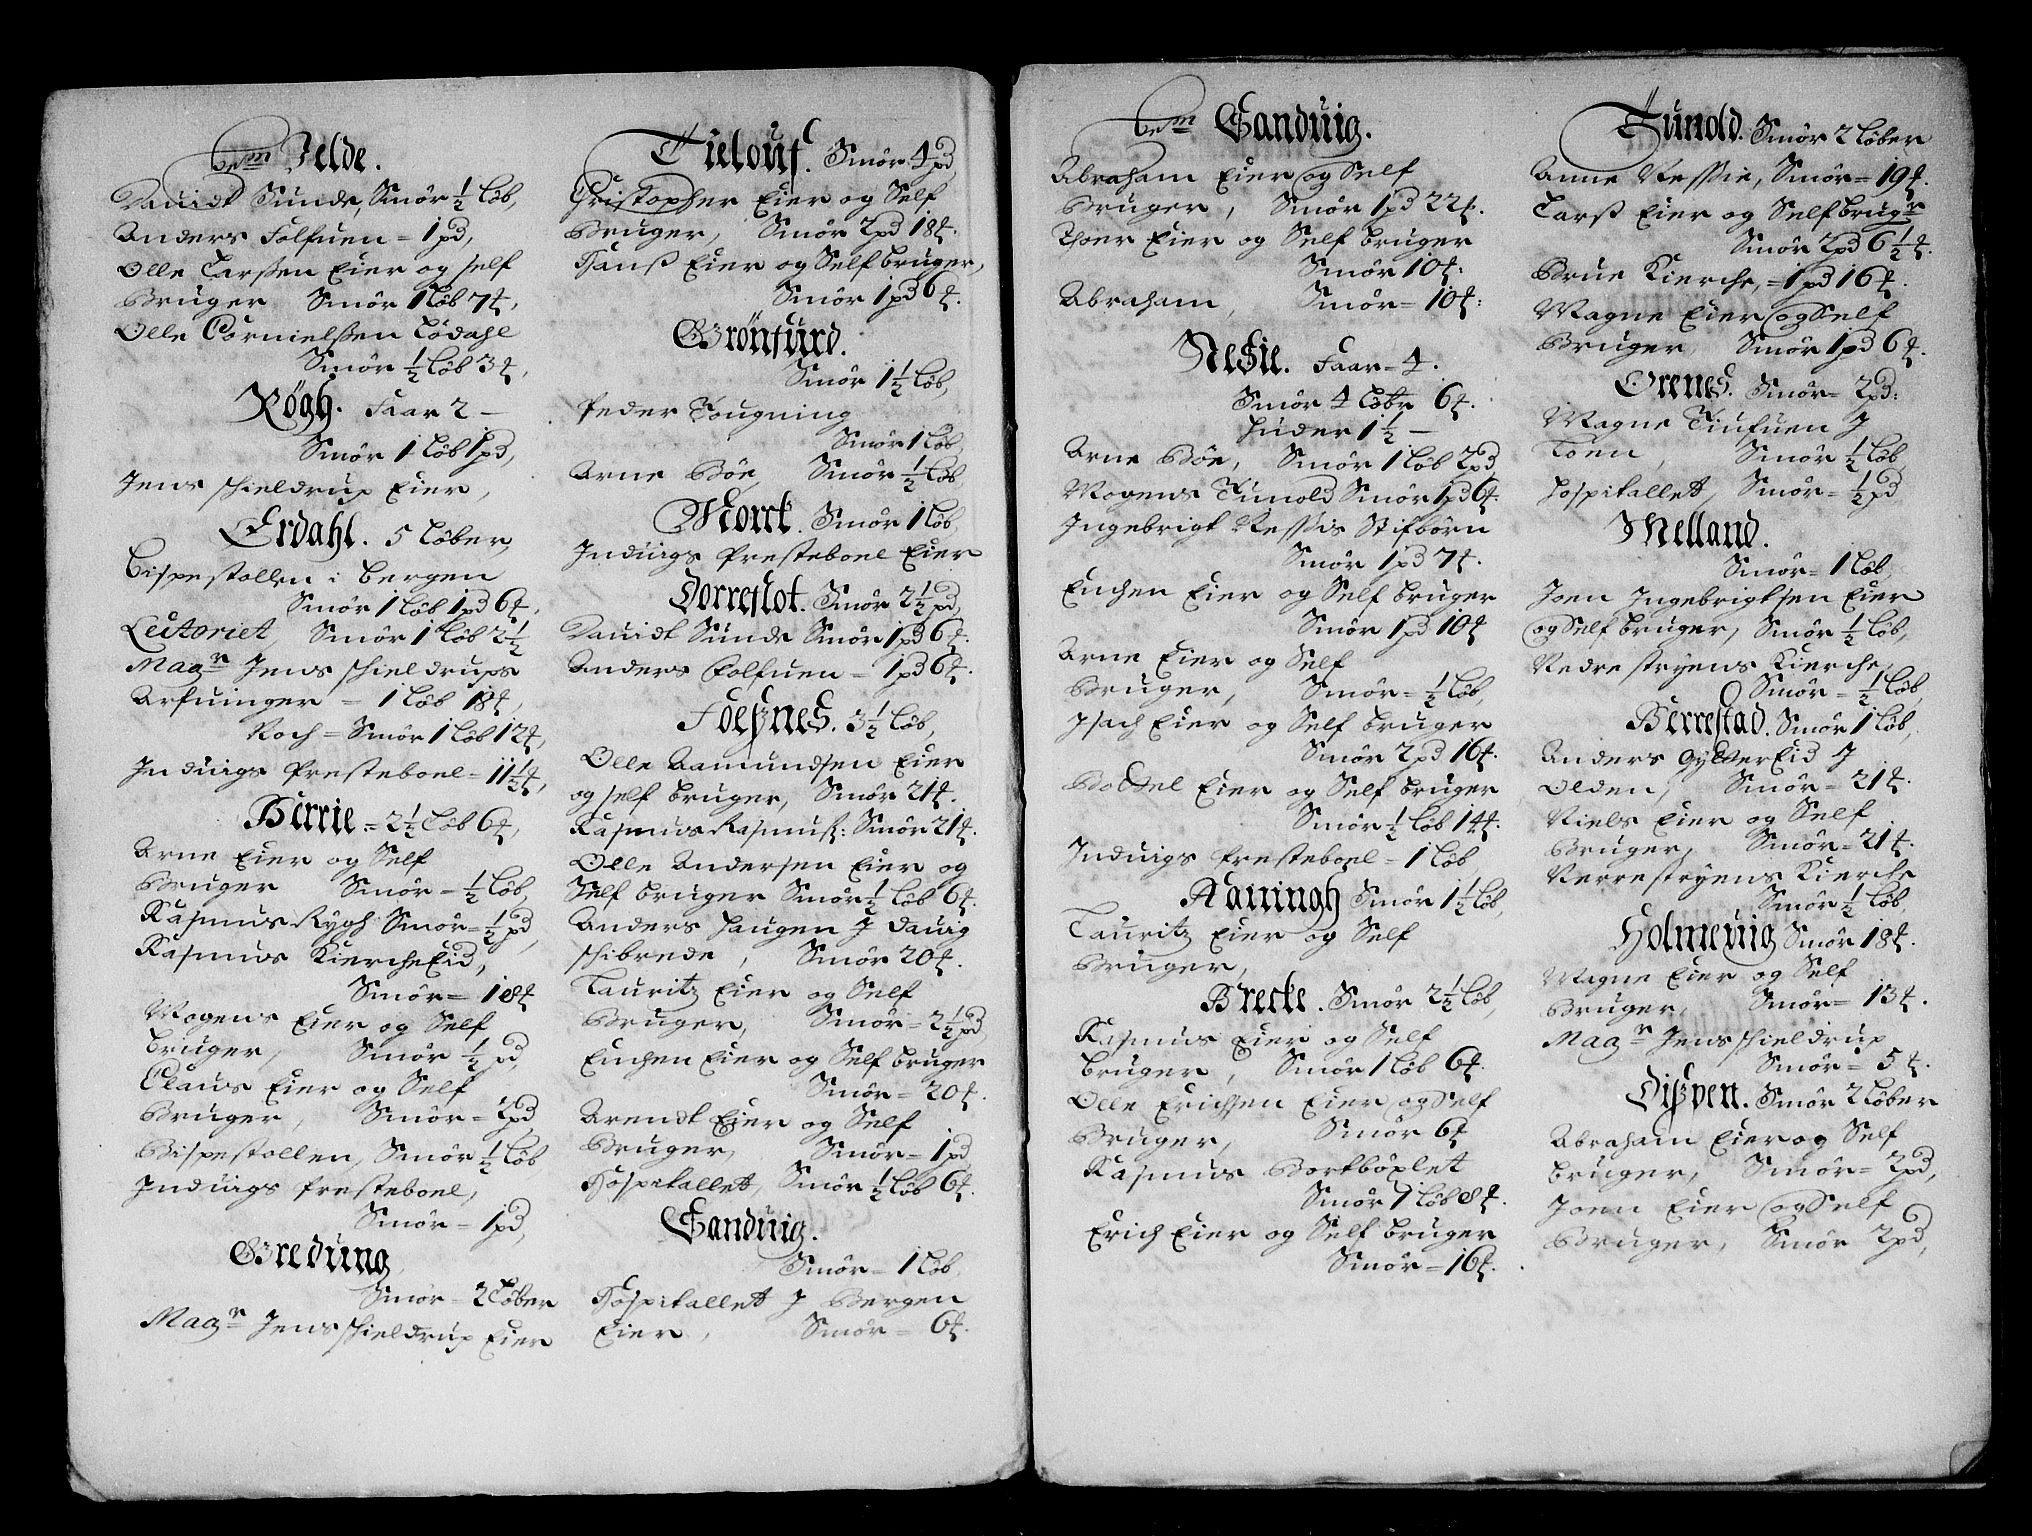 Bem Jelde.
Dauidt Sunde, Smör ½ Löb,
Anders Folfuen = 1 pd,
Olle Larssen Eier og self
Bruger Smör 1 Löb 7 ₰,
Olle Cornielssen Lödahl
Smör ½ Löb 3 ₰,
Rögh. Faar 2 —
Smör 1 Löb 1 pd,
Jens Schieldrup Eier,
Erdahl. 5 Löber,
Bispestollen i Bergen
Smör 1 Löb 1 pd 6 ₰,
Lectoriet, Smör 1 Löb 2½
Magr Jens Schieldrups
Arfuinger = 1 Löb 18 ₰,
Noch = Smör 1 Löb 12 ₰,
Induigs Presteboel = 11½ ₰,
Berrie = 2½ Löb 6 ₰,
Arne Eier og Self
Bruger Smör = ½ Löb,
Rasmus Rygh Smör = ½ pd,
Rasmus KiercheEid,
Smör = 18 ₰
Mogens Eier og Self
bruger, Smör ½ pd,
Claus Eier og Self
Bruger, Smör = 2 pd,
Bispestollen, Smör ½ Löb
Induigs Presteboel,
Smör = 1 pd,
Gredung
Smör = 2 Löber
Magr Jens Schieldrup Eier
Tielouf. Smör 4 pd,
Christopher Eier og Self
Bruger, Smör 2 pd 18 ₰.
Hanss Eier og Self bruger,
Smör 1 pd 6 ₰.
Grönfurd.
Smör 1½ Löb,
Peder Tougning
Smör 1 Löb,
Arne Böe, Smör ½ Löb
Morck. Smör 1 Löb,
Induigs Presteboel Eier
Dorreslot. Smör 2½ pd,
Dauidt Sunde Smör 1 pd 6 ₰.
Anders Folfuen = 1 pd 6 ₰.
Foessnes. 3½ Löb,
Olle Aamundsen Eier
og self bruger, Smör 21 ₰.
Rasmus Rasmuss: Smör 21 ₰.
Olle Andersen Eier og
Self bruger Smör ½ Löb 6 ₰.
Anders Haugen J Dauig
schibrede, Smör 20 ₰.
Lauritz Eier og Self
Bruger, Smör = 2½ pd,
Enchen Eier og Self bruger
Smör = 20 ₰.
Arendt Eier og Self
Bruger, Smör = 1 pd,
Hospitallet, Smör ½ Löb 6 ₰.
Sanduig.
Smör = 1 Löb,
Hospitallet J Bergen
Eier, Smör = 6 ₰.
Bem Sanduig.
Abraham Eier og Self
Bruger, Smör 1 pd 22 ₰.
Thoer Eier og Self bruger
Smör 10 ₰:
Abraham, Smör = 10 ₰:
Nessie. Faar = 4.
Smör 4 Löbr 6 ₰.
Huder 1½ —
Arne Böe, Smör 1 Löb 2 pd,
Mogens Tunold Smör 1 pd 6 ₰.
Ingebrigt Nessis Stifbörn
Smör 1 pd 7 ₰.
Enchen Eier og Self bruger
Smör 1 pd 10 ₰
Arne Eier og Self
Bruger, Smör = ½ Löb,
Isach Eier og Self bruger
Smör 2 pd 16 ₰.
Bottel Eier og Self bruger
Smör ½ Löb 14 ₰.
Induigs Presteboel = 1 Löb
Aarringh Smör 1½ Löb,
Lauritz Eier og Self
Bruger,
Brecke. Smör 2½ Löb,
Rasmus Eier og Self
bruger, Smör 1 Löb 6 ₰.
Olle Erichsen Eier og Self
Bruger, Smör 6 ₰
Rasmus
Smör 1 Löb 8 ₰.
Erich Eier og Self bruger
Smör = 16 ₰.
Tunold. Smör 2 Löber
Anne Nessie, Smör = 19 ₰.
Larss Eier og Self brugr
Smör 2 pd 6½ ₰.
Brue Kierche, = 1 pd 16 ₰.
Magne Eier og Self
Bruger, Smör 1 pd 6 ₰.
Orenes. Smör = 2 pd:
Magne Tiufuen J
Loen, Smör ½ Löb,
Hospitallet, Smör = ½ pd
Melland.
Smör = 1 Löb,
Joen Ingebrigtsen Eier
og Self bruger, Smör ½ Löb,
Nedre stryens Kierche,
Smör = ½ Löb,
Berrestad. Smör 1 Löb,
Anders GytterEid J
Olden, Smör = 21 ₰.
Niels Eier og Self
Bruger, Smör = 21 ₰.
Nerrestryens Kierche
Smör ½ Löb,
Holmeuig Smör 18 ₰.
Magne Eier og Self
Bruger, Smör = 13 ₰.
Magr Jens Schieldrup
Smör = 5 ₰.
Smör 2 Löber
Abraham Eier og Self
bruger, Smör = 2 pd,
Joen Eier og Self
Bruger, Smör 2 pd,